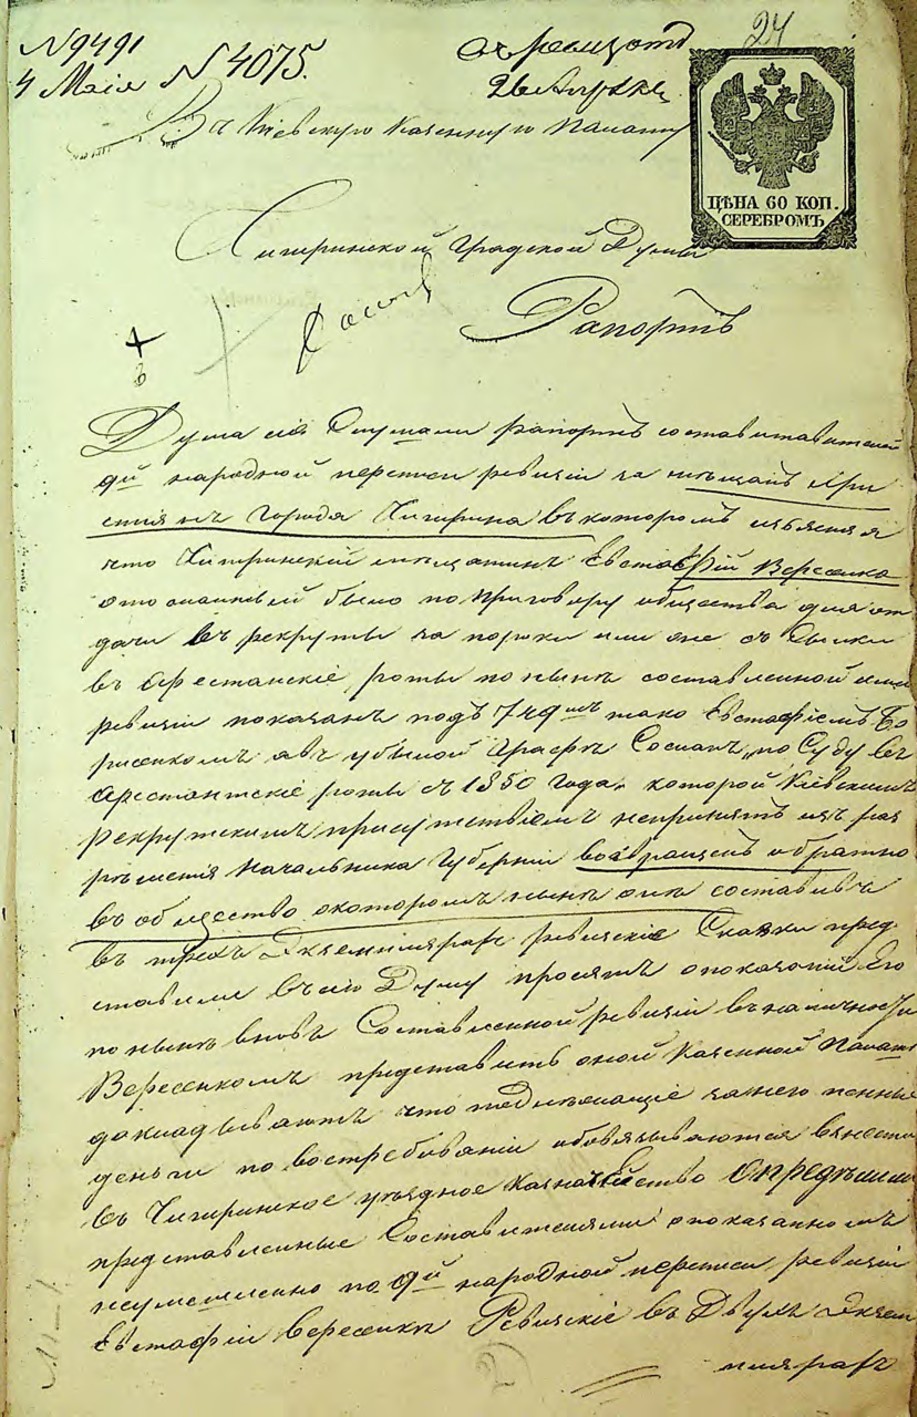 24
N 9491
4 Маія N 4075.
26 Апреля
ЦѢНА 60 КОП.
СЕРЕБРОМЪ.
Въ Кіевскую Казенную Палату
Чигиринской Градской Думы
Рапортъ
Дума сія слушали рапортъ составителей
9й народной переписи ревизіи за мѣщанъ Хри
стіянъ города Чигирина въ которомъ изъясняя
что Чигиринскій мѣщанинъ Евстафій Вересенко
было по приговору общества для от
дачи въ рекруты за пороки или же
въ Арестанскіе роты по нынѣ составленной ими
ревизіи показанъ подъ 749мъ тако Евстафіемъ Ве
рисенкомъ а въ убылой Графѣ Сосланъ „по Суду въ
Арестантскіе роты съ 1850 года„ которой Кіевскимъ
рекрутскимъ присутствіемъ непринятъ изъ раз
рѣшенія Начальника Губерніи возвращенъ обратно
въ общество окоторомъ нынѣ они составивъ
въ трехъ Экземплярахъ ревизскіе Сказки пред
ставили въ сію Думу просятъ опоказаніи Его
по нынѣ вновь Составленной ревизіи въ наличности
Вересенкомъ представить оной Казенной Палатѣ
докладываютъ что подлежащіе занего пенные
деньги по востребованіи обовязываются внести
въ Чигиринское уѣздное Казначейство Опредѣлили
представленные Составителями опоказанномъ
по 9й народной переписи ревизіи
Евстафіи Вересенкѣ Ревизскіе въ Двухъ Экзем
плярахъ